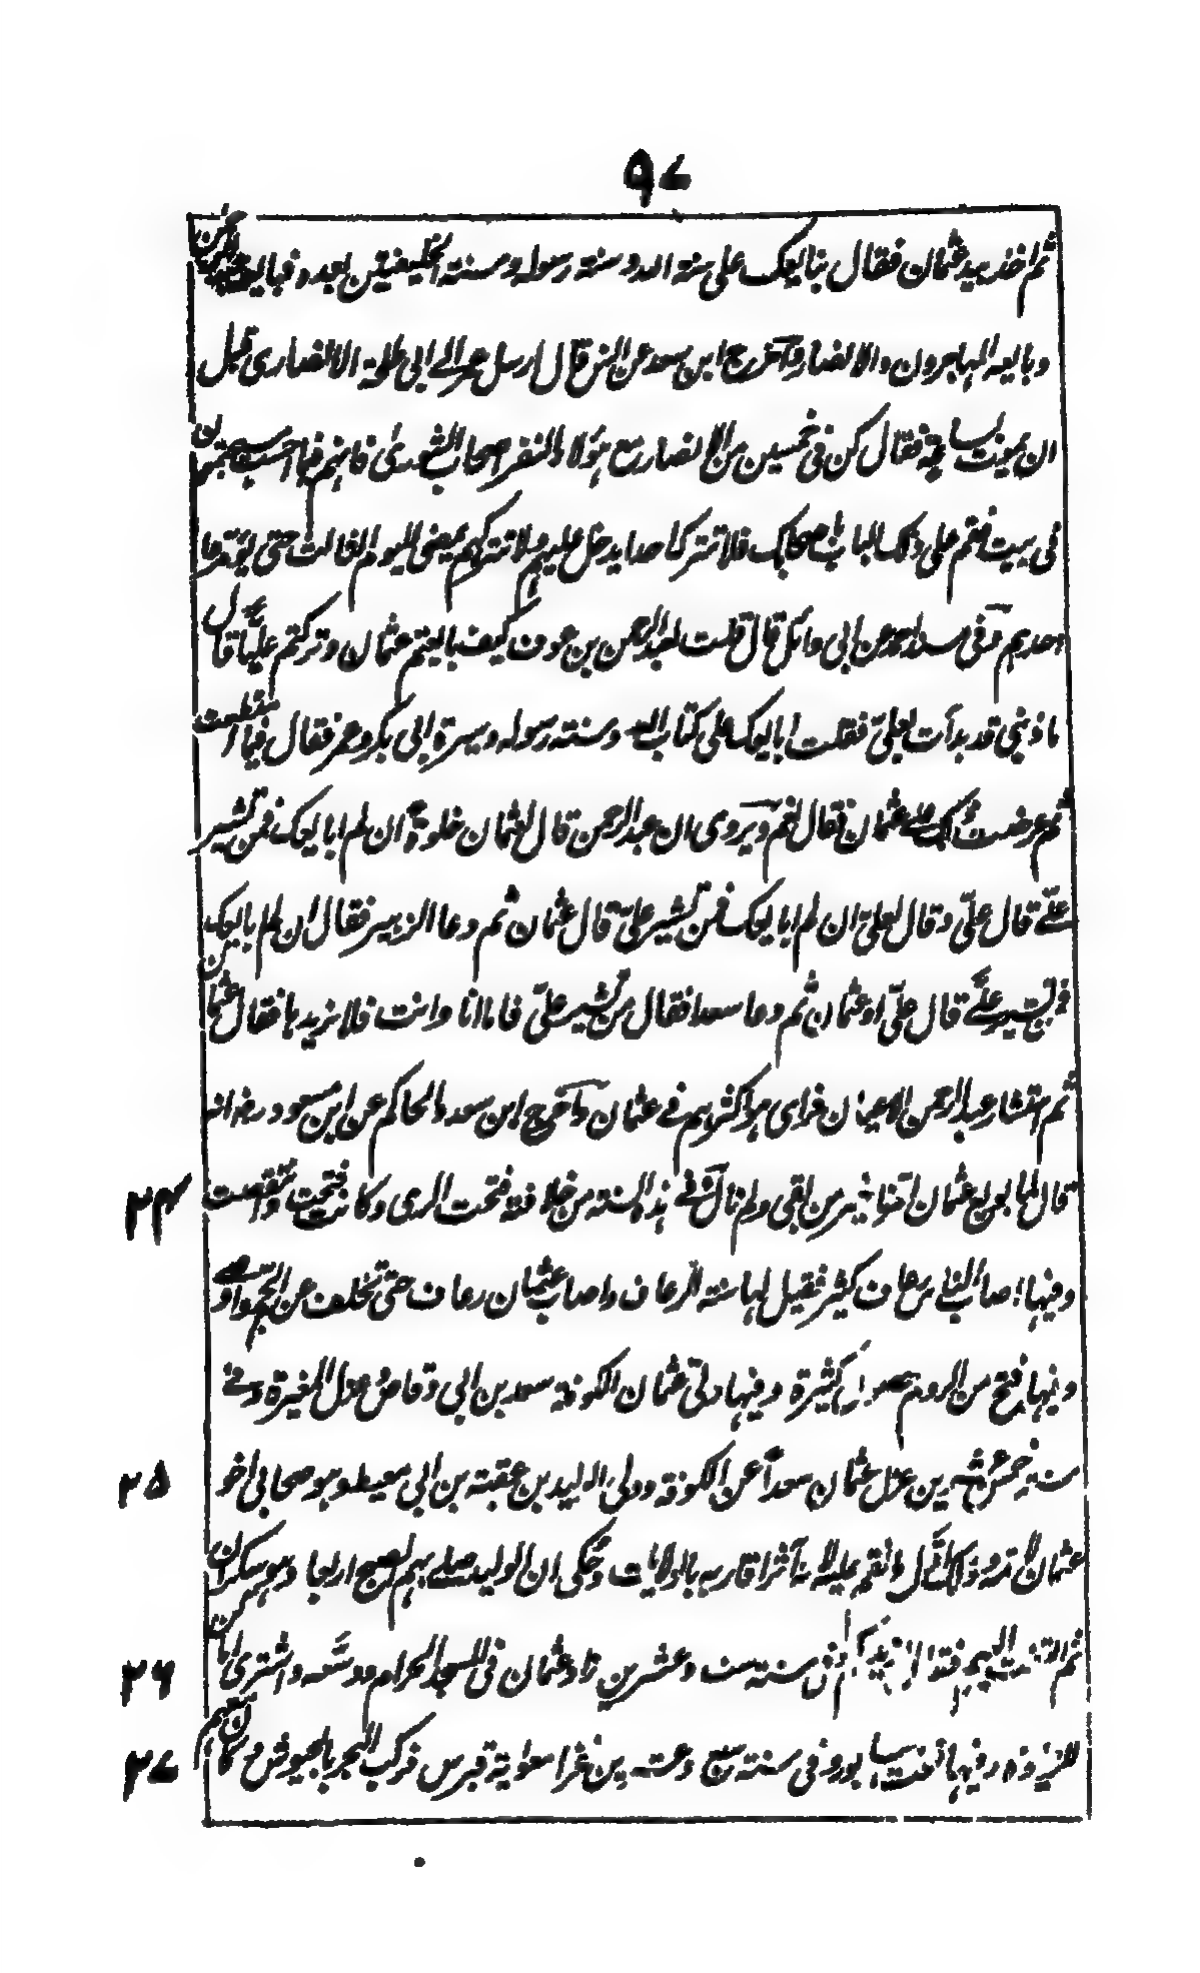 ٩٧
ثم اخذ بيد عثمان فقال نبايعك على سنة الله وسنة رسوله وسنة الخليفتين بعده فبايعه عبد الرحمن
وبايعه المهاجرون والانصار واخرج ابن سعد عن انس قال ارسل عمر الى ابى طلحة الانصارى قبل
ان يموت بساعة فقال كن فى خمسين من الانصار مع هؤلاء النفر اصحاب الشورى فانهم فيما احسب سيجتمعون
فى بيت فقم على ذلك الباب باصحابك فلا تترك احدا يدخل عليهم ولا تتركهم يمضى اليوم الثالث حتى يؤمروا
احدهم وفى مسند احمد عن ابى وائل قال قلت لعبد الرحمن بن عوف كيف بايعتم عثمان وتركتم عليّا قال
ما ذنبى قد بدأت بعلىّ فقلت ابايعك على كتاب الله وسنة رسوله وسيرة ابى بكر وعمر فقال فيما استطعت
ثم عرضت ذلك على عثمان فقال نعم ويروى ان عبد الرحمن قال لعثمان خلوة ان لم ابايعك فمن تشير
علىّ قال علىّ وقال لعلىّ ان لم ابايعك فمن تشير علىّ قال عثمان ثم دعا الزبير فقال ان لم ابايعك
فمن تشير علىّ قال علىّ او عثمان ثم دعا سعدا فقال من تشير علىّ فاما انا وانت فلا نريدها فقال عثمان
ثم استشار عبد الرحمن الاعيان فراى هوا اكثرهم فى عثمان واخرج ابن سعد والحاكم عن ابن مسعود رضه انه
قال لما بويع عثمان امّرنا خير من بقى ولم نأل وفى هذه السنة من خلافته فتحت الرى وكانت فتحت وانتقضت
٢٤
وفيها اصاب الناس رعاف كثير فقيل لها سنة الرعاف واصاب عثمان رعاف حتى تخلف عن الحج واوصى
وفيها فتح من الروم حصون كثيرة وفيها ولّى عثمان الكوفة سعد بن ابى وقاص وعزل المغيرة وفى
سنة خمس وعشرين عزل عثمان سعدا عن الكوفة وولى الوليد بن عقبة بن ابى معيط وهو صحابى اخو
٢٥
عثمان لامه وذلك اول ما نقم عليه لانه آثر اقاربه بالولايات وحكى ان الوليد صلى بهم الصبح اربعا وهو سكران
ثم التفت اليهم فقال ازيدكم وفى سنة ست وعشرين زاد عثمان فى المسجد الحرام ووسّعه واشترى اماكن
٢٦
للزيادة وفيها فتحت سابور وفى سنة سبع وعشرين غزا معاوية قبرس فركب البحر بالجيوش وكان معهم
٢٧